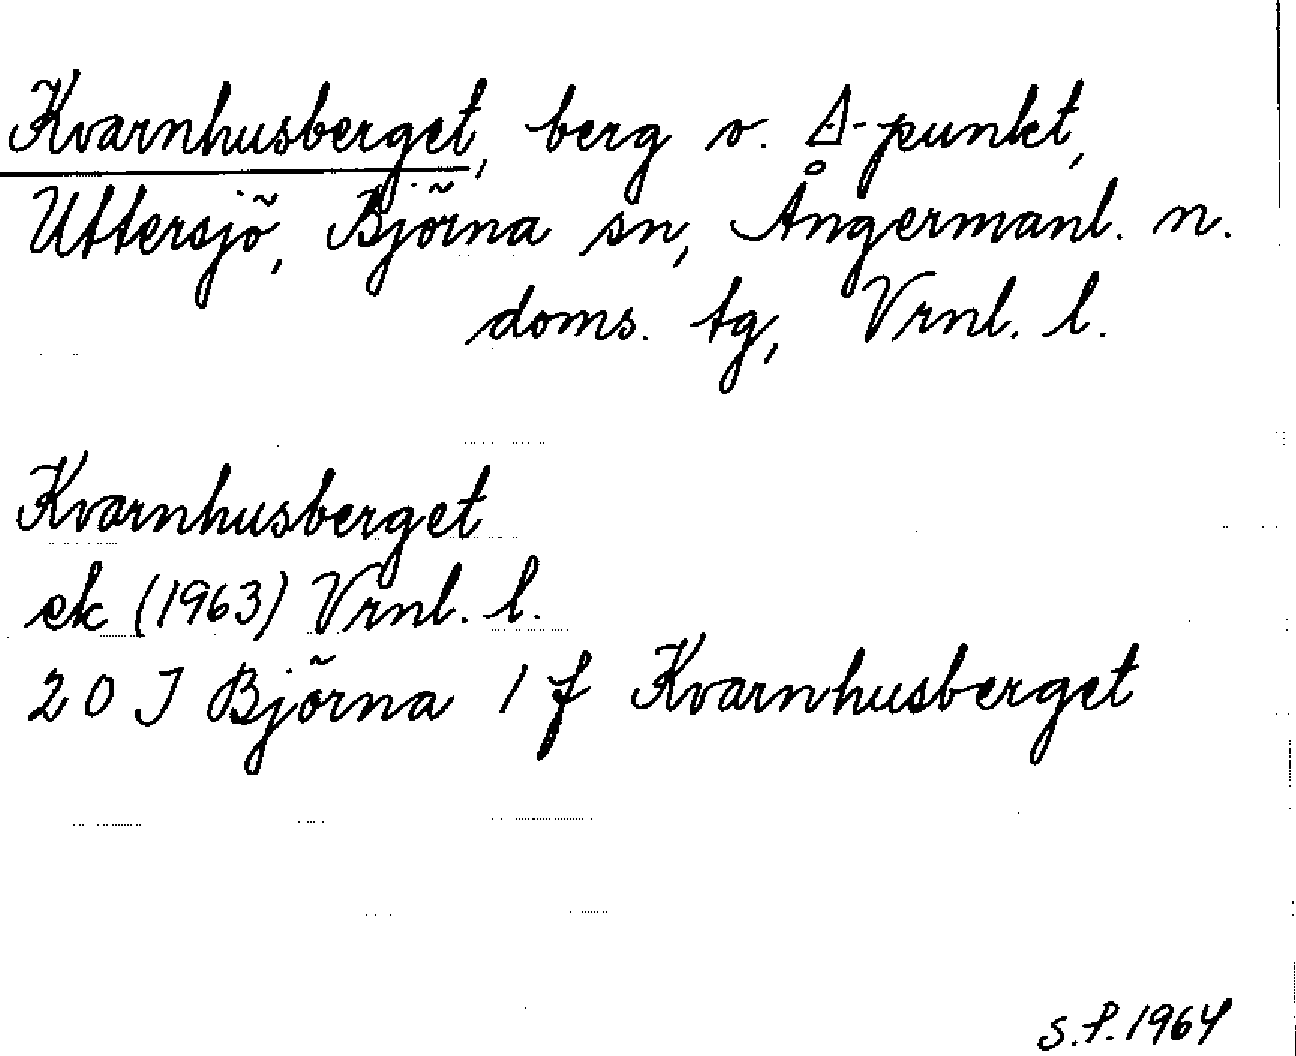 Kvarnhusberget, berg v. △-punkt,
Uttersjö, Björna sn, Ångermanl. n.
doms. tg, Vrnl. l.
Kvarnhusberget
ek (1963) Vrnl. l.
20 J Björna 1 f Kvarnhusberget
S.P. 1964